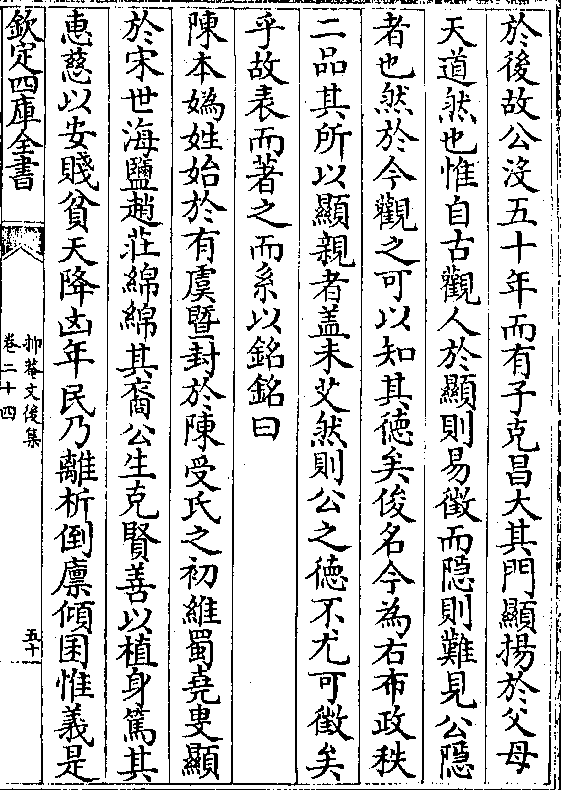 於後故公没五十年而有子克昌大其門顯揚於父母
天道然也惟自古觀人於顯則易徵而隱則難見公隱
者也然於今觀之可以知其徳矣俊名今為右布政秩
二品其所以顯親者盖未艾然則公之徳不尤可徵矣
乎故表而著之而系以銘銘曰
陳本媯姓始於有虞曁封於陳受氏之初維蜀堯叟顯
於宋世海鹽趙莊綿綿其裔公生克賢善以植身篤其
惠慈以安賤貧天降凶年民乃離析倒廪傾囷惟義是
欽定四庫全書
抑菴文後集
卷二十四
五十